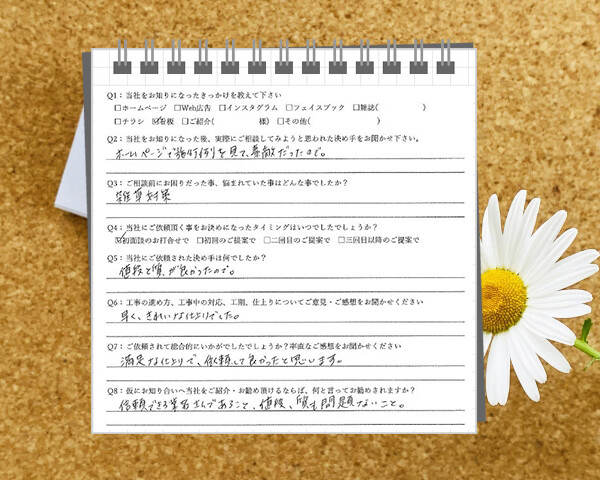 Q1：当社をお知りになったきっかけを教えて下さい
□ホームページ □Web広告 □インスタグラム □フェイスブック □雑誌( )
□チラシ ☑看板 □ご紹介( 様) □その他( )
Q2：当社をお知りになった後、実際にご相談してみようと思われた決め手をお聞かせ下さい。
ホームページで施工例を見て、素敵だったので。
Q3：ご相談前にお困りだった事、悩まれていた事はどんな事でしたか？
雑草対策
Q4：当社にご依頼頂く事をお決めになったタイミングはいつでしたでしょうか？
☑初面談のお打合せで □初回のご提案で □二回目のご提案で □三回目以降のご提案で
Q5：当社にご依頼された決め手は何でしたか？
値段と質が良かったので。
Q6：工事の進め方、工事中の対応、工期、仕上りについてご意見・ご感想をお聞かせください
早く、きれいな仕上りでした。
Q7：ご依頼されて総合的にいかがでしたでしょうか？率直なご感想をお聞かせください
満足な仕上りで、依頼して良かったと思います。
Q8：仮にお知り合いへ当社をご紹介・お勧め頂けるならば、何と言ってお勧めされますか？
信頼できる業者さんであること、値段、質も問題ないこと。